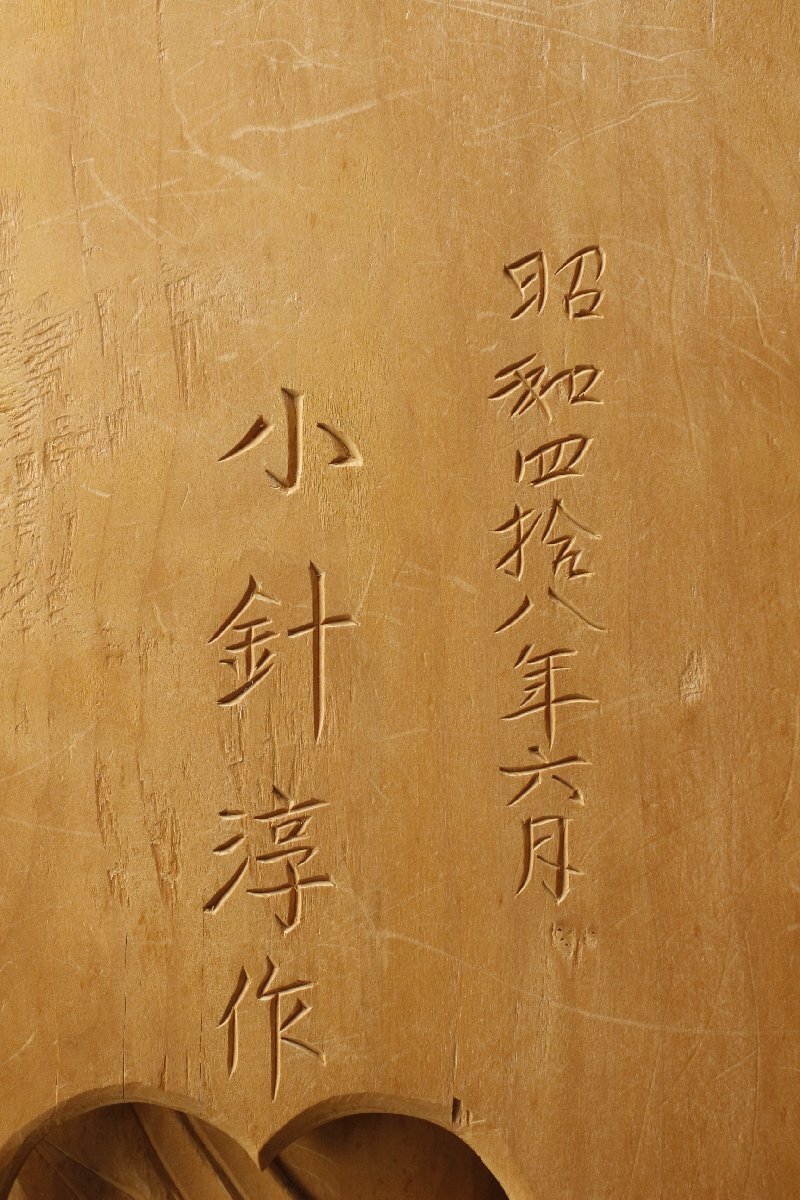 昭和四拾八年六月
小針淳作